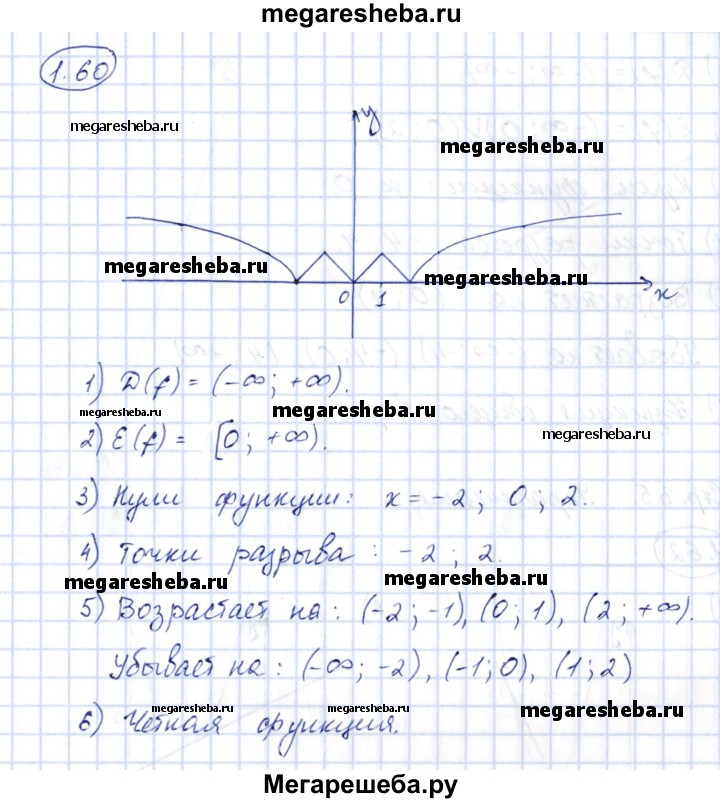 megaresheba.ru
1.60
megaresheba.ru
y
megaresheba.ru
megaresheba.ru
megaresheba.ru
0 1 x
1) D(f) = (-∞; +∞).
megaresheba.ru
megaresheba.ru
2) E(f) = [0; +∞).
megaresheba.ru
3) Нули функции: x = -2; 0; 2.
4) Точки разрыва: -2; 2.
megaresheba.ru
megaresheba.ru
5) Возрастает на: (-2; -1), (0; 1), (2; +∞).
Убывает на: (-∞; -2), (-1; 0), (1; 2)
megaresheba.ru
megaresheba.ru
megaresheba.ru
6) Четная функция.
Мегарешеба.ру